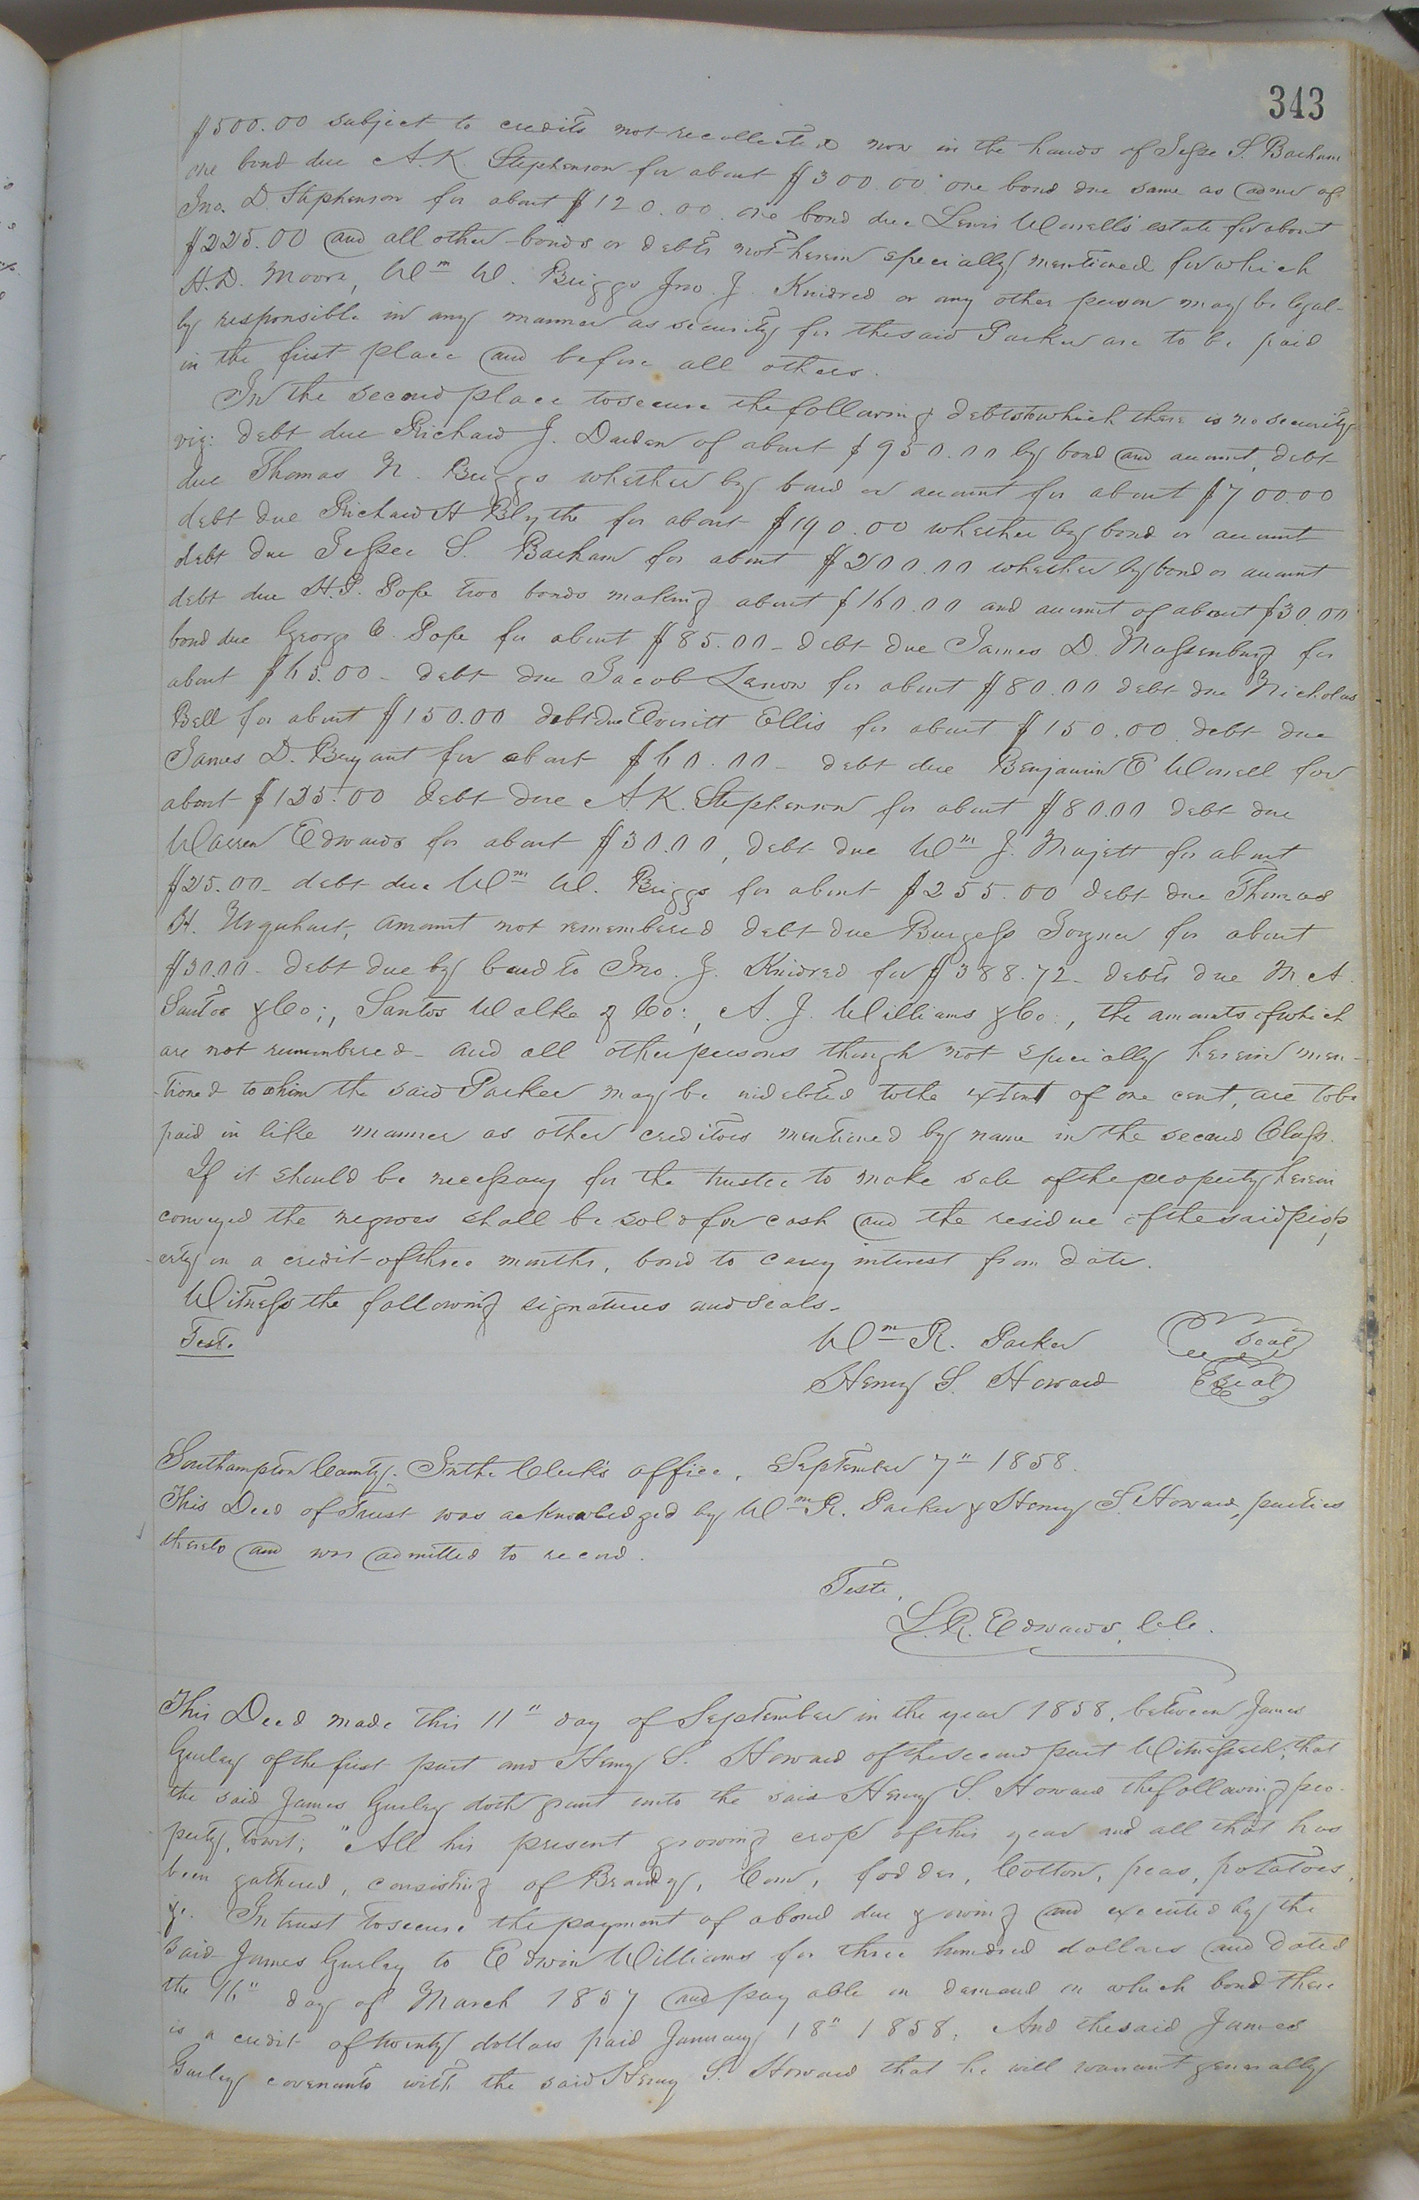 343
$500.00 subject to credits not recollected now in the hands of Jesse S. Barham
one bond due A. K. Stephenson for about $300.00 one bond due same as admr of
Jno. D. Stephenson for about $120.00. one bond due Lewis Worrell's estate for about
$225.00 and all other bonds or debts not herein specially mentioned for which
H. D. Moore, Wm W. Briggs Jno. J. Kindred or any other person may be legal-
ly responsible in any manner as security for the said Parker are to be paid
in the first place and before all others.
In the second place to secure the following debts to which there is no security
viz: debt due Richard J. Darden of about $950.00 by bond and account, debt
due Thomas N. Briggs whether by bond or account for about $700.00
debt due Richard H Blythe for about $190.00 whether by bond or account
debt due Jesse S. Barham for about $200.00 whether by bond or account
debt due H. P. Pope two bonds making about $160.00 and account of about $30.00
bond due George C. Pope for about $85.00 - debt due James D. Massenburg for
about $65.00 - debt due Jacob Lanon for about $80.00 debt due Nicholas
Bell for about $150.00 debt due Everitt Ellis for about $150.00. debt due
James D. Bryant for about $60.00 - debt due Benjamin E Worrell for
about $125.00 debt due A. K. Stephenson for about $80.00 debt due
Warren Edwards for about $30.00, debt due Wm J. Majett for about
$25.00 - debt due Wm W. Briggs for about $255.00 debt due Thomas
H. Urquhart, amount not remembered debt due Burgess Joyner for about
$30.00 - debt due by bond to Jno. J. Kindred for $388.72 - debts due M. A.
Santos & Co;, Santos Walke & Co:, A. J. Williams & Co:, the amounts of which
are not remembered - and all other persons though not specially herein men-
-tioned to whom the said Parker may be indebted to the extent of one cent, are to be
paid in like manner as other creditors mentioned by name in the second Class.
If it should be necessary for the trustee to make sale of the property herein
conveyed the negroes shall be sold for cash and the residue of the said prop
-erty on a credit of three months, bond to carry interest from date.
Witness the following signatures and seals.
Test. Wm R. Parker Seal
Henry S. Howard Seal
Southampton County. In the Clerk's office, September 7" 1858.
This Deed of Trust was acknowledged by Wm R. Parker & Henry S. Howard, parties
thereto and was admitted to record.
Teste,
L. R. Edwards, C.C.
This Deed made this 11" day of September in the year 1858, between James
Gurley of the first part and Henry S. Howard of the second part Witnesseth, that
the said James Gurley doth grant unto the said Henry S. Howard the following pro-
perty, towit; "All his present growing crop of this year and all that has
been gathered, consisting of Brandy, Corn, fodder, Cotton, peas, potatoes,
&c. In trust to secure the payment of a bond due & owing and executed by the
said James Gurley to Edwin Williams for three hundred dollars and dated
the 16" day of March 1857 and payable on demand on which bond there
is a credit of twenty dollars paid January 18" 1858. And the said James
Gurley covenants with the said Henry S. Howard that he will warrant generally